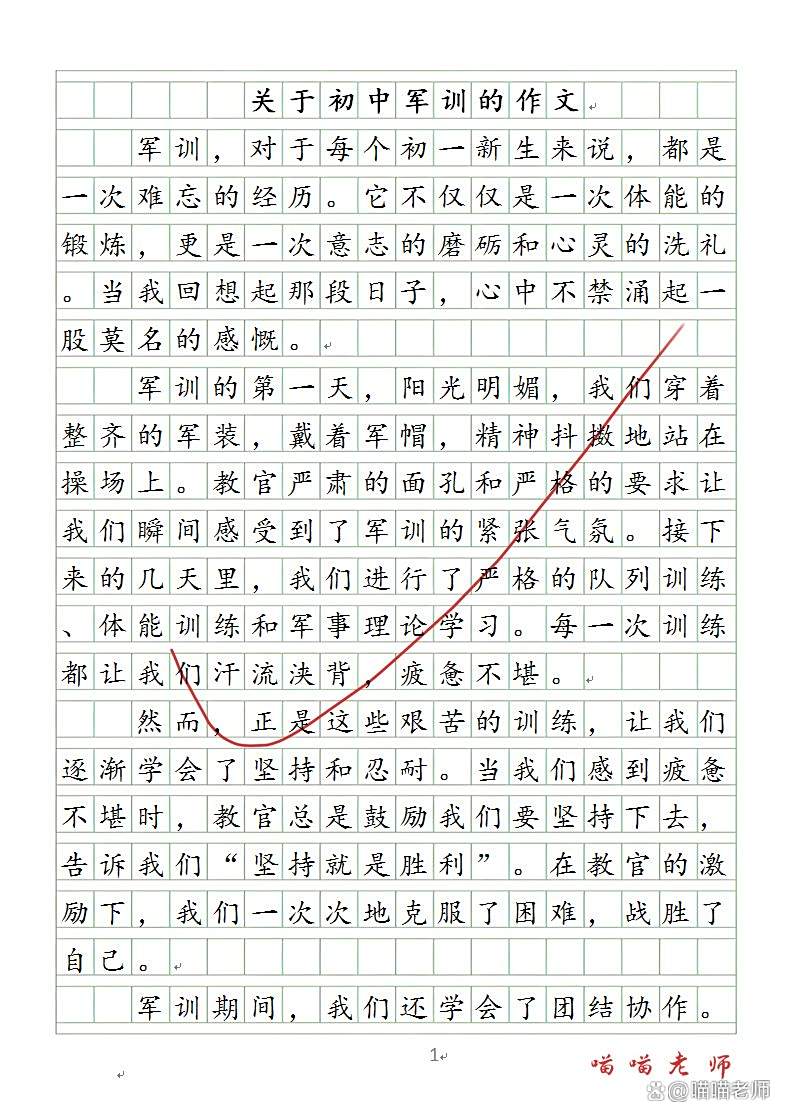 关于初中军训的作文
军训，对于每个初一新生来说，都是
一次难忘的经历。它不仅仅是一次体能的
锻炼，更是一次意志的磨砺和心灵的洗礼
。当我回想起那段日子，心中不禁涌起一
股莫名的感慨。
军训的第一天，阳光明媚，我们穿着
整齐的军装，戴着军帽，精神抖擞地站在
操场上。教官严肃的面孔和严格的要求让
我们瞬间感受到了军训的紧张气氛。接下
来的几天里，我们进行了严格的队列训练
、体能训练和军事理论学习。每一次训练
都让我们汗流浃背，疲惫不堪。
然而，正是这些艰苦的训练，让我们
逐渐学会了坚持和忍耐。当我们感到疲惫
不堪时，教官总是鼓励我们要坚持下去，
告诉我们“坚持就是胜利”。在教官的激
励下，我们一次次地克服了困难，战胜了
自己。
军训期间，我们还学会了团结协作。
1
喵喵老师
@喵喵老师